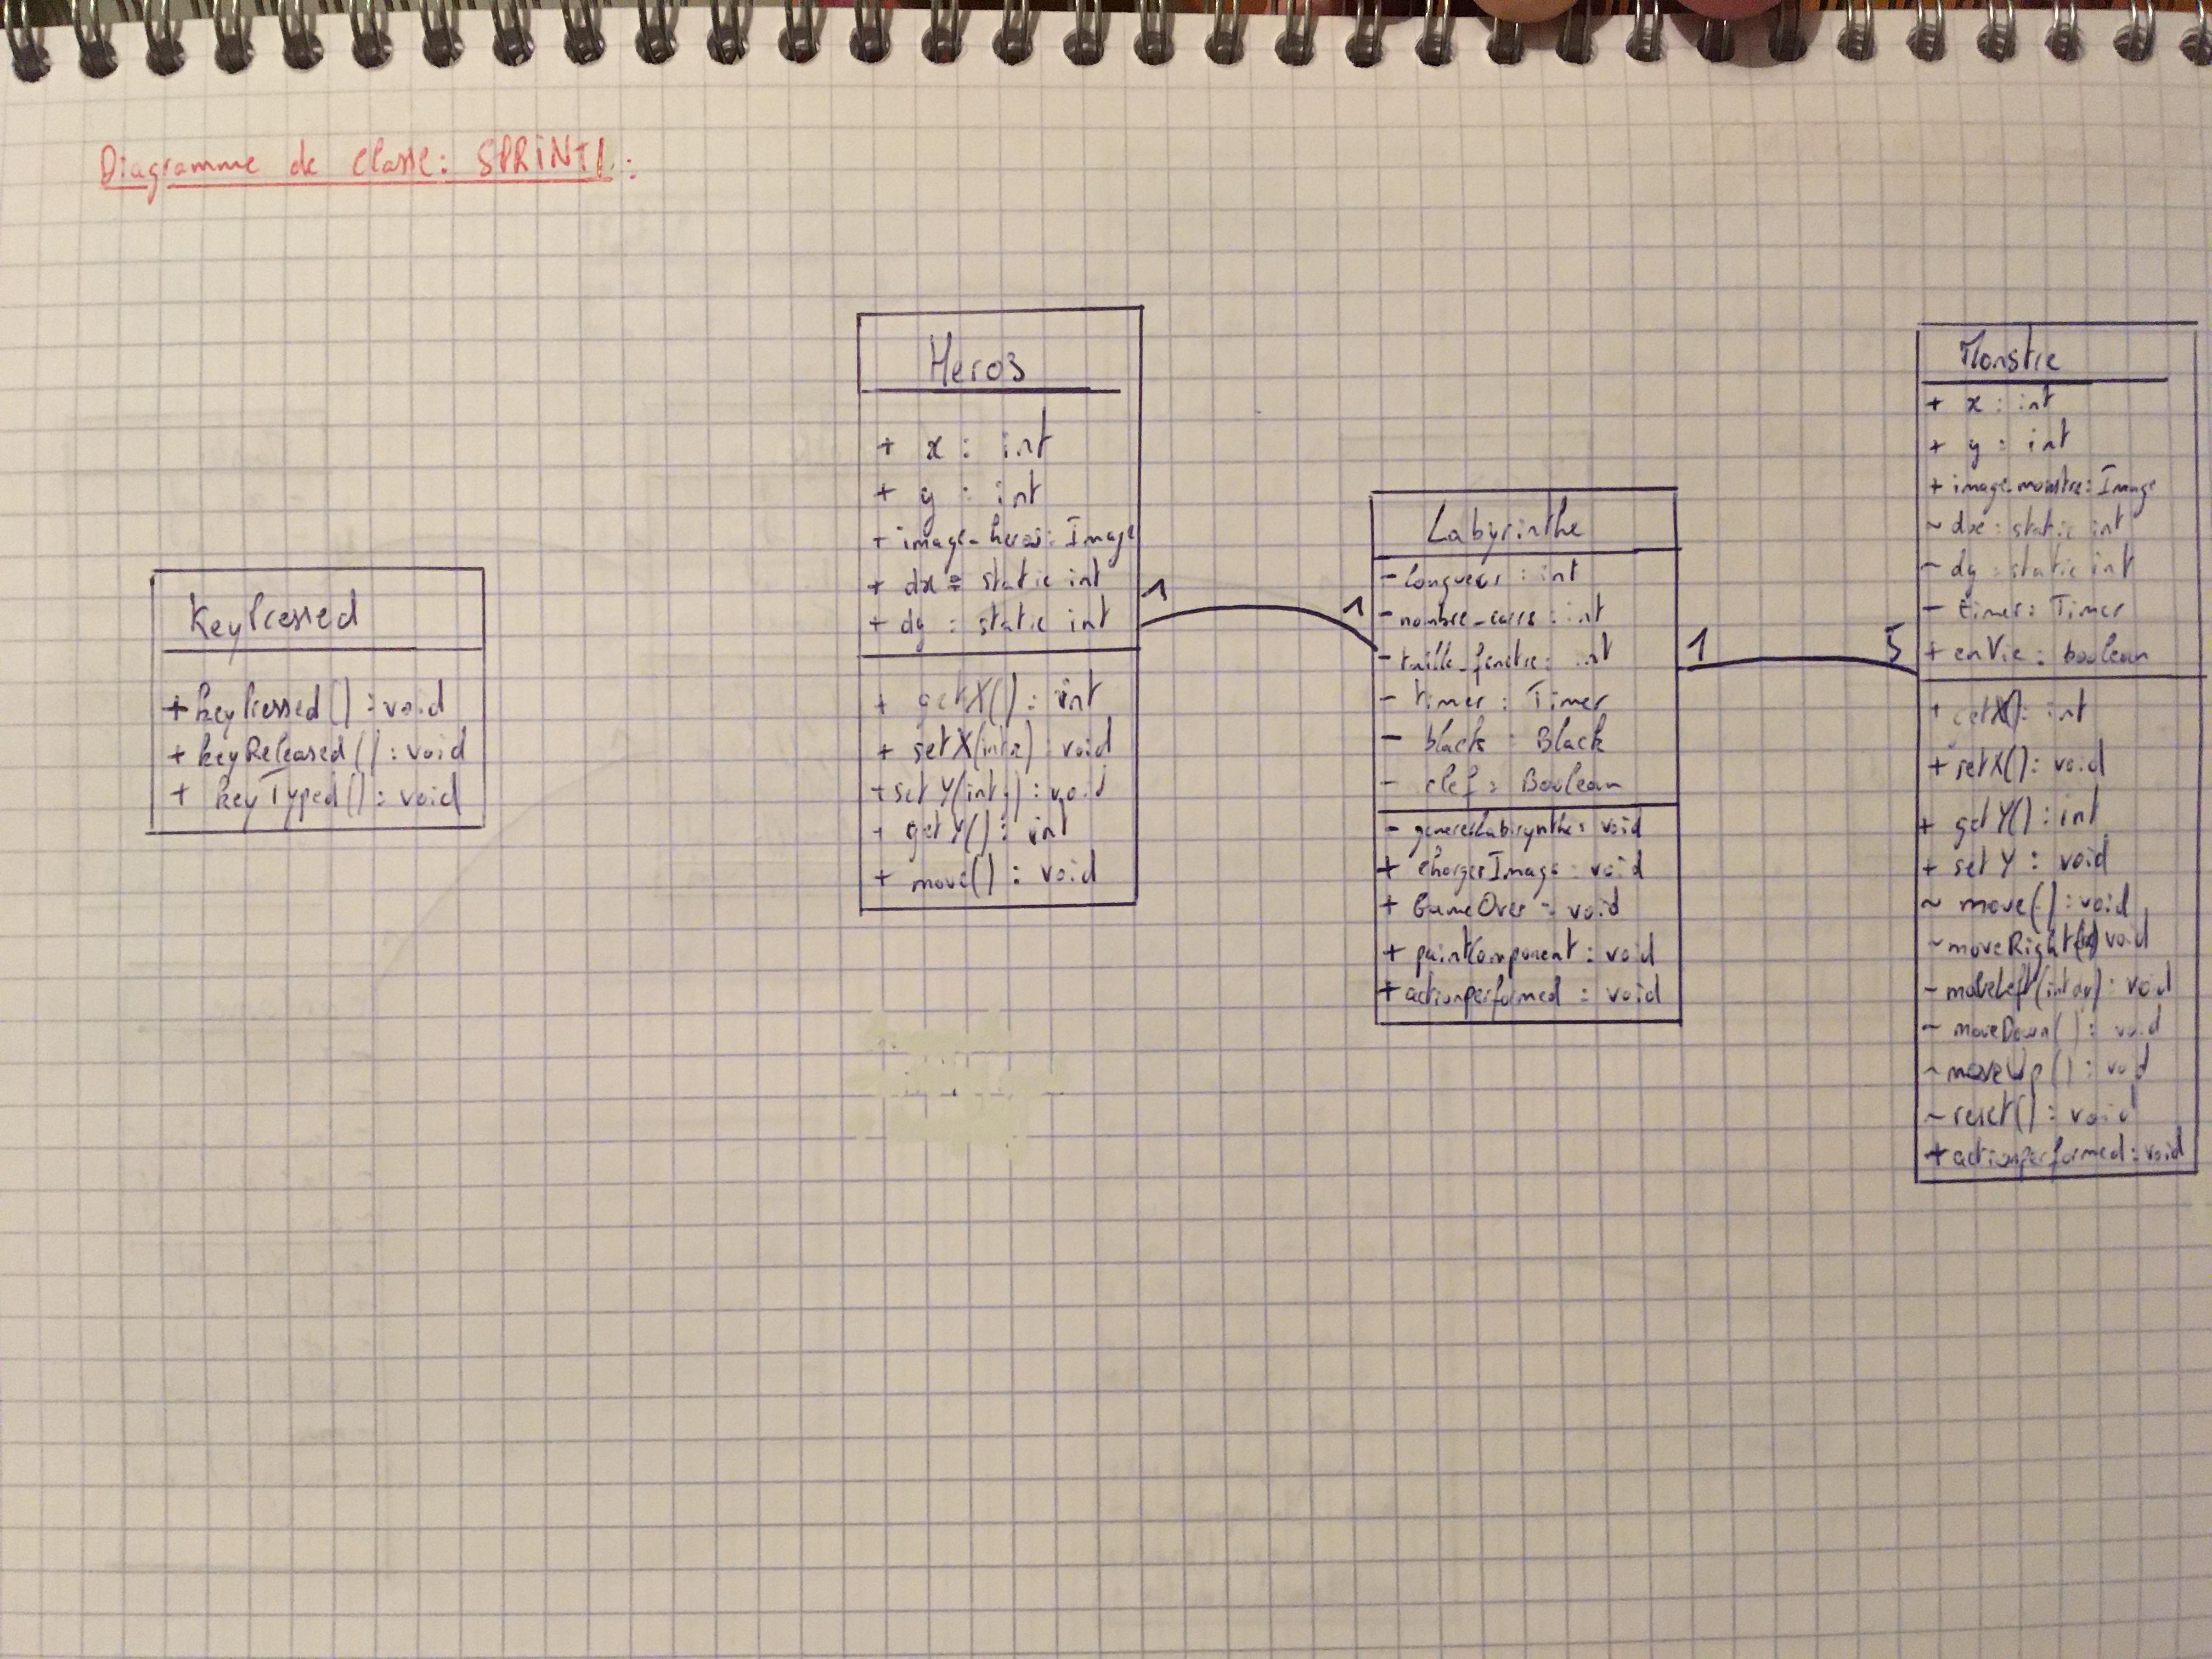 Diagramme de classe: SPRINT1 :
KeyPressed
+ keyPressed() : void
+ keyReleased() : void
+ keyTyped() : void
Heros
+ x : int
+ y : int
+ image_heros: Image
+ dx : static int
+ dy : static int
+ getX() : int
+ setX(int x) : void
+ setY(int y) : void
+ getY() : int
+ move() : void
1
1
Labyrinthe
- longueur : int
- nombre_carre : int
- taille_fenetre : int
- timer : Timer
- black : Black
- clef : Boolean
- genererLabirynthe : void
+ chargerImage : void
+ GameOver : void
+ paintComponent : void
+ actionperformed : void
1
5
Monstre
+ x : int
+ y : int
+ image_monstre : Image
~ dx : static int
- dy : static int
- timer : Timer
+ enVie : boolean
+ getX() : int
+ setX() : void
+ getY() : int
+ setY : void
~ move() : void
~ moveRight() void
- moveLeft(int dx) : void
- moveDown() : void
~ moveUp() : void
~ reset() : void
+ actionperformed : void